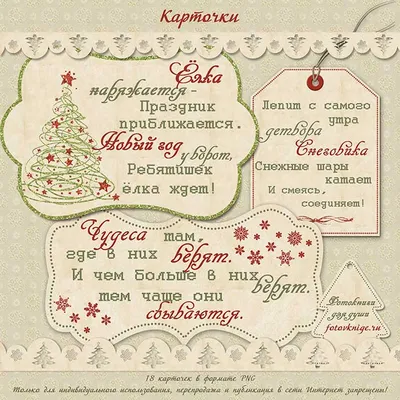 Карточки
Ёлка
наряжается -
Праздник
приближается.
Новый год
у ворот,
Ребятишек
ёлка ждет!
Лепит с самого
утра
детвора
Снеговика
Снежные шары
катает
И смеясь,
соединяет!
Чудеса там,
где в них верят.
И чем больше в них
верят.
тем чаще они
сбываются.
Фотокниги
для души
fotovknige.ru
18 карточек в формате PNG
Только для индивидуального использования, перепродажа и публикация в сети Интернет запрещены!